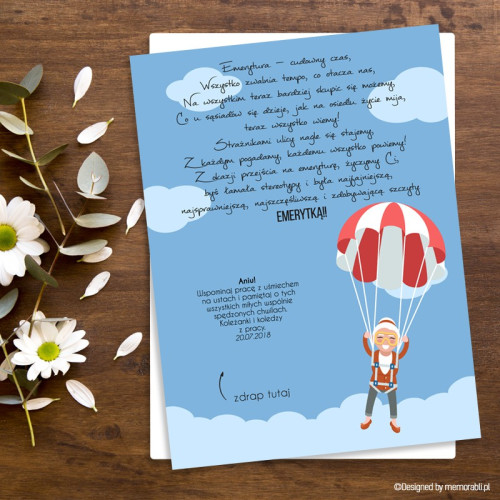 Emerytura – cudowny czas,
Wszystko zwalnia tempo, co otacza nas,
Na wszystkim teraz bardziej skupić się możemy.
Co u sąsiadów się dzieje, jak na osiedlu życie mija,
teraz wszystko wiemy!
Strażnikami ulicy nagle się stajemy,
Z każdym pogadamy, każdemu wszystko powiemy!
Z okazji przejścia na emeryturę, życzymy Ci,
byś łamała stereotypy i była najfajniejszą,
najsprawniejszą, najszczęśliwszą i zdobywającą szczyty
EMERYTKĄ!!
Aniu!
Wspominaj pracę z uśmiechem
na ustach i pamiętaj o tych
wszystkich miłych wspólnie
spędzonych chwilach.
Koleżanki i koledzy
z pracy.
20.07.2018
zdrap tutaj
©Designed by memorabli.pl